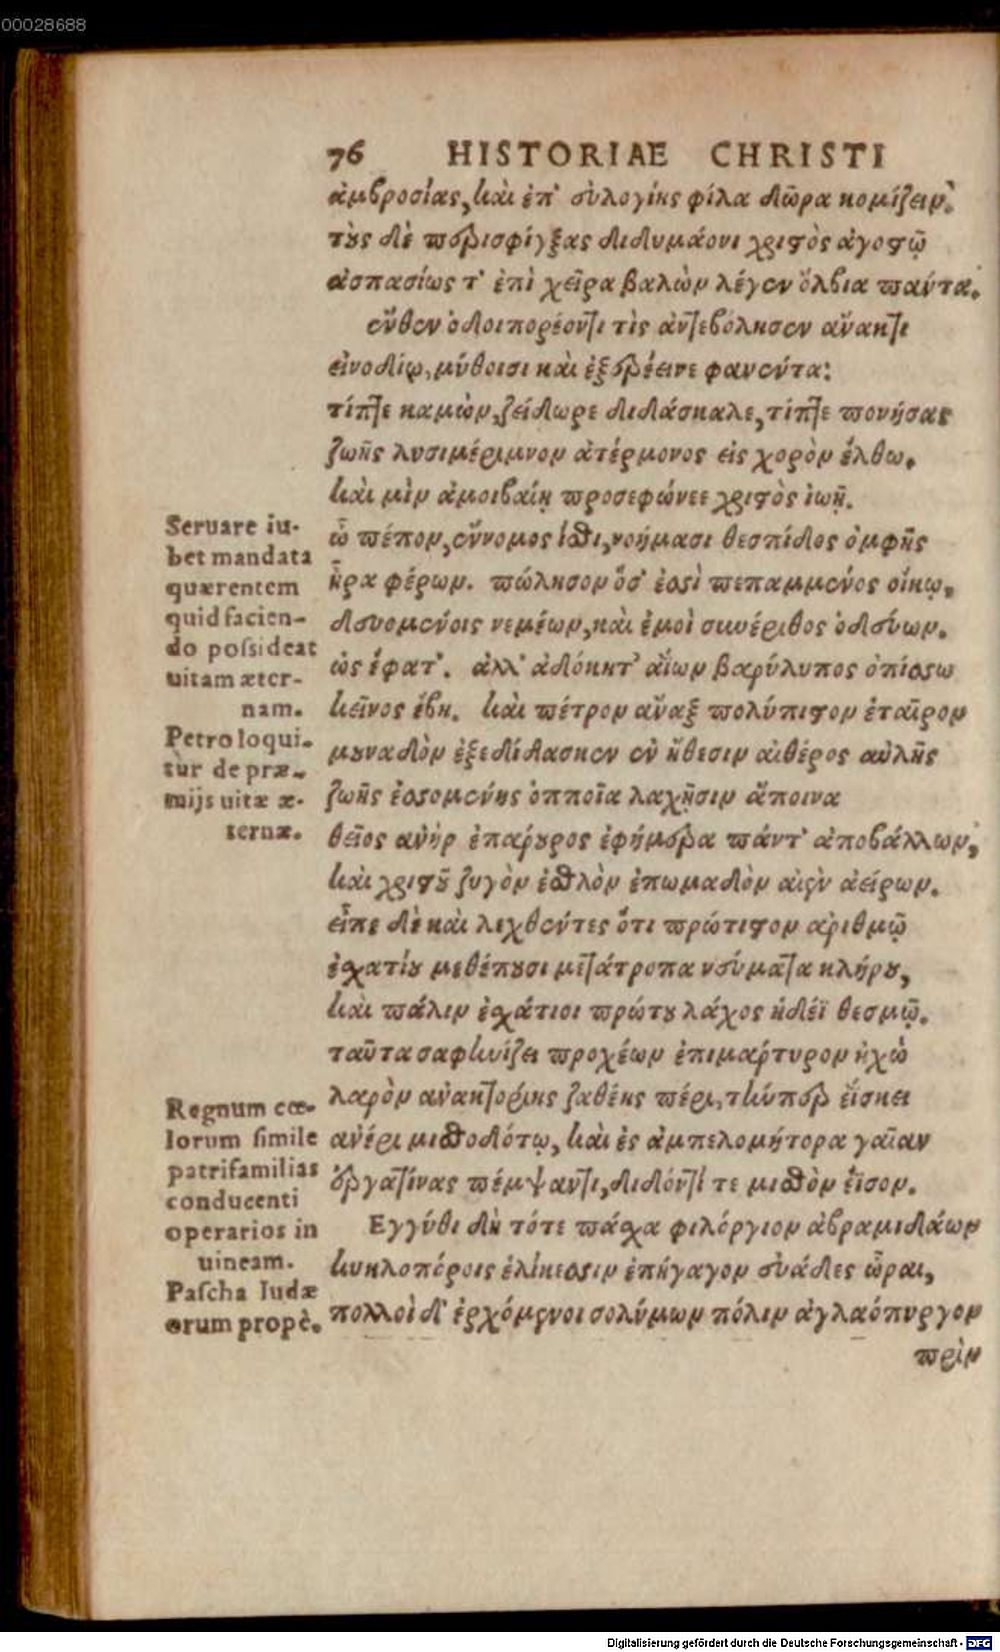 00028688
76 HISTORIAE CHRISTI
ἀμβροσίας, καὶ ἐπ' σὐλογίης φίλα δῶρα κομίζειν.
τοὺς δὲ περισφίγξας διδυμάονι χριστὸς ἀγοστῷ
ἀσπασίως τ' ἐπὶ χεῖρα βαλὼν λέγεν ὄλβια πάντα.
ἔνθεν ὁδοιπορέοντι τὶς ἀντεβόλησεν ἄνακτι
εἰνοδίῳ, μύθοισι καὶ ἐξερέεινε φανέντα:
τίπτε καμὼν, ζείδωρε διδάσκαλε, τίπτε πονήσας
ζωῆς λυσιμέριμνον ἀτέρμονος εἰς χορὸν ἔλθω.
καὶ μὶν ἀμοιβαίῃ προσεφώνεε χριστὸς ἰωῇ.
Seruare iu-
bet mandata
quærentem
quid facien-
do possideat
uitam æter-
nam.
ὦ πέπον, ἔννομος ἴσθι, νοήμασι θεσπίδος ὀμφῆς
ἦρα φέρων. πώλησον ὅσ' ἐστὶ πεπαμμένος οἴκῳ,
δευομένοις νεμέων, καὶ ἐμοὶ συνέριθος ὁδεύων.
ὡς ἔφατ'. ἀλλ' ἀδόκητ' ἀΐων βαρύλυπος ὀπίσσω
κεῖνος ἔβη. καὶ πέτρον ἄναξ πολύπιστον ἑταῖρον
Petro loqui-
tur de præ-
mijs uitæ æ-
ternæ.
μουναδὸν ἐξεδίδασκεν ἐν ἤθεσιν αἰθέρος αὐλῆς
ζωῆς ἐσσομένης ὁπποῖα λαχῇσιν ἄποινα
θεῖος ἀνὴρ ἐπαρουρος ἐφήμερα πάντ' ἀποβάλλων,
καὶ χριστοῦ ζυγὸν ἐσθλὸν ἐπωμαδὸν αἰὲν ἀείρων.
εἶπε δὲ καὶ λεχθέντες ὅτι πρώτιστον ἀριθμῷ
ἐσχατίου μεθέπουσι μετάτροπα νεύματα κλήρου,
καὶ πάλιν ἐσχάτιοι πρώτου λάχος ἡδέϊ θεσμῷ.
ταῦτα σαφηνίζει προχέων ἐπιμάρτυρον ἠχὼ
Regnum cœ-
lorum simile
patrifamilias
conducenti
operarios in
uineam.
λαρὸν ἀνακτορίης ζαθέης πέρι, τήνπερ ἔϊσκει
ἀνέρι μισθοδότῳ, καὶ ἐς ἀμπελομήτορα γαῖαν
ἐργατίνας πέμψαντι, διδόντί τε μισθὸν ἔϊσον.
Εγγύθι δὴ τότε πάσχα φιλόργιον ἀβραμιδάων
Pascha Iudæ
orum propè.
κυκλοπόροις ἑλίκεσσιν ἐπήγαγον εὐάδες ὧραι,
πολλοὶ δ' ἐρχόμενοι σολύμων πόλιν ἀγλαόπυργον
πρὶν
Digitalisierung gefördert durch die Deutsche Forschungsgemeinschaft - DFG